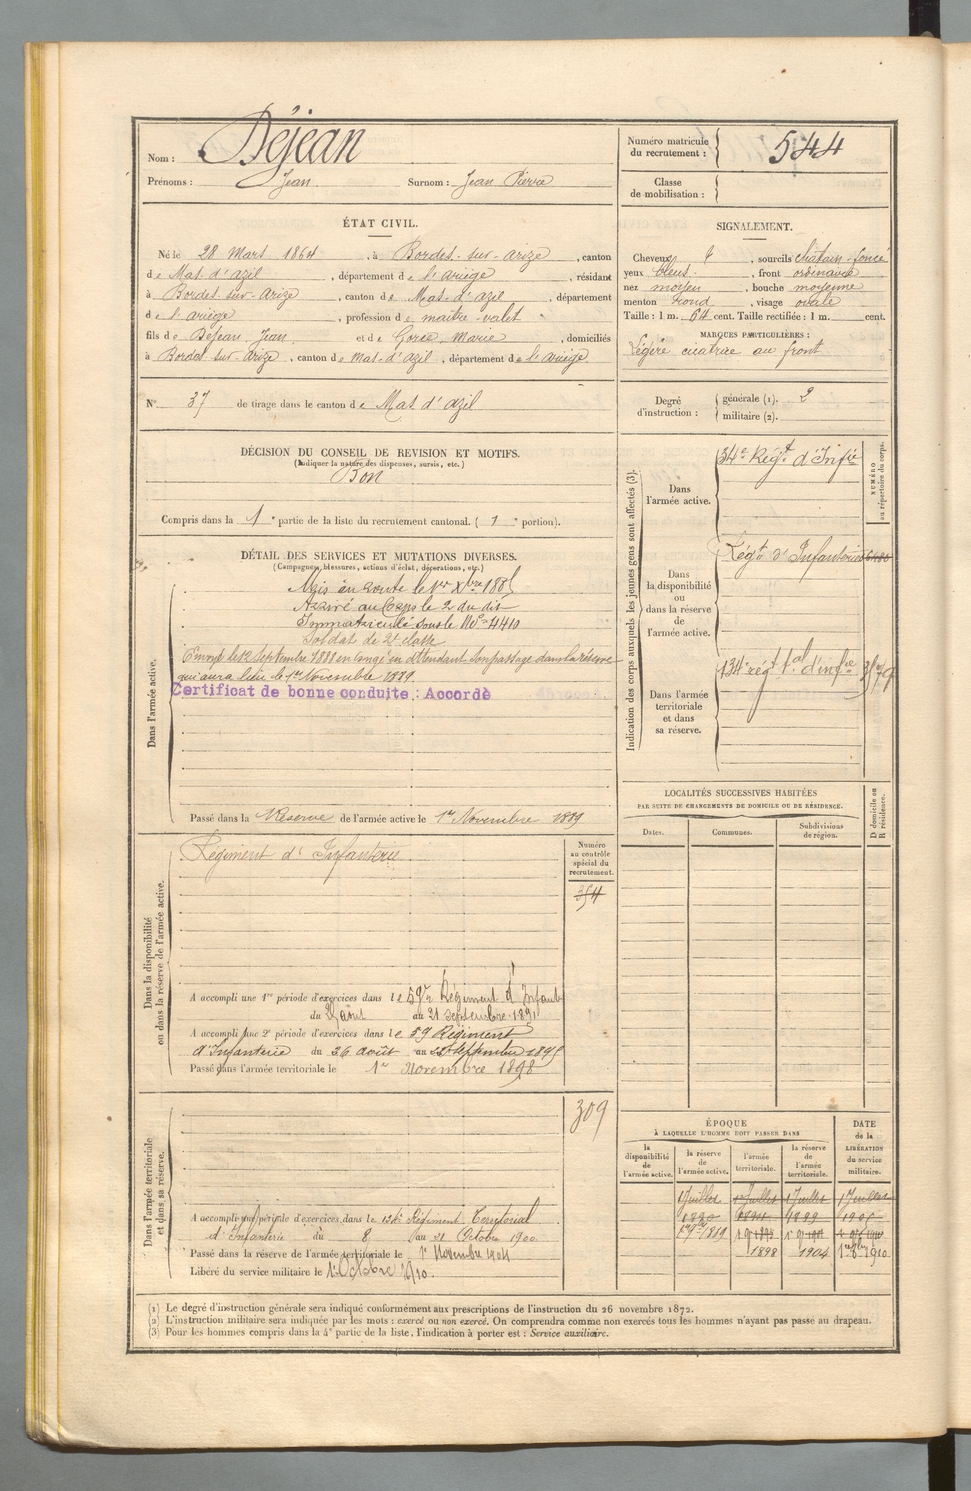 Nom : Déjean
Prénoms : Jean Surnom : Jean Pierre
Numéro matricule du recrutement : 544
Classe de mobilisation :
ÉTAT CIVIL.
Né le 28 Mars 1864, à Bordes-sur-Arize, canton
de Mas d'azil, département de l'ariège, résidant
à Bordes-sur-Arize, canton de Mas-d'azil, département
de l'ariège, profession de maître-valet
fils de Déjean, Jean et de Gorce, Marie, domiciliés
à Bordes sur-Arize, canton de Mas-d'azil, département de l'ariège
SIGNALEMENT.
Cheveux et, sourcils châtain-foncé
yeux bleus, front ordinaire
nez moyen, bouche moyenne
menton rond, visage ovale
Taille : 1 m. 64 cent. Taille rectifiée : 1 m. cent.
MARQUES PARTICULIÈRES :
Légère cicatrice au front
N° 37 de tirage dans le canton de Mas d'azil
Degré d'instruction : générale (1). 2
militaire (2).
DÉCISION DU CONSEIL DE REVISION ET MOTIFS.
(Indiquer la nature des dispenses, sursis, etc.)
Bon
Compris dans la 1e partie de la liste du recrutement cantonal. (1e portion).
DÉTAIL DES SERVICES ET MUTATIONS DIVERSES.
(Campagnes, blessures, actions d'éclat, décorations, etc.)
Dans l'armée active.
Mis en route le 1er Xbre 1885
Arrivé au Corps le 2 du dit
Immatriculé sous le No 4410
Soldat de 2e classe
Envoyé le 12 Septembre 1888 en congé en attendant son passage dans la réserve
qui aura lieu le 1er Novembre 1889.
Certificat de bonne conduite : Accordé
Passé dans la Réserve de l'armée active le 1er Novembre 1889
Indication des corps auxquels les jeunes gens sont affectés (3).
NUMÉRO au répertoire du corps.
Dans l'armée active.
34e Régt d'Infie
Dans la disponibilité ou dans la réserve de l'armée active.
Régt d'Infanterie
Dans l'armée territoriale et dans sa réserve.
134e régt tal d'infie
LOCALITÉS SUCCESSIVES HABITÉES
PAR SUITE DE CHANGEMENTS DE DOMICILE OU DE RÉSIDENCE.
Dates. Communes. Subdivisions de région. D domicile ou R résidence.
Dans la disponibilité ou dans la réserve de l'armée active.
Régiment d'Infanterie
Numéro au contrôle spécial du recrutement.
354
A accompli une 1re période d'exercices dans le 59e Régiment d'Infant
du août au 21 septembre 1891
A accompli une 2e période d'exercices dans le 59 Régiment
d'Infanterie du 26 août au septembre 1895
Passé dans l'armée territoriale le 1er Novembre 1898
Dans l'armée territoriale et dans sa réserve.
309
A accompli une période d'exercices dans le 134e Régiment Territorial
d'Infanterie du 8 au 21 Octobre 1900
Passé dans la réserve de l'armée territoriale le 1er Novembre 1904
Libéré du service militaire le 1er Octobre 1910.
ÉPOQUE
À LAQUELLE L'HOMME DOIT PASSER DANS
DATE de la LIBÉRATION du service militaire.
la disponibilité de l'armée active. la réserve de l'armée active. l'armée territoriale. la réserve de l'armée territoriale.
1 Juillet 1er Juillet 1 Juillet 1er Juillet
1890 1899 1905
1889
1898 1904 1910
(1) Le degré d'instruction générale sera indiqué conformément aux prescriptions de l'instruction du 26 novembre 1872.
(2) L'instruction militaire sera indiquée par les mots : exercé ou non exercé. On comprendra comme non exercés tous les hommes n'ayant pas passé au drapeau.
(3) Pour les hommes compris dans la 4e partie de la liste, l'indication à porter est : Service auxiliaire.